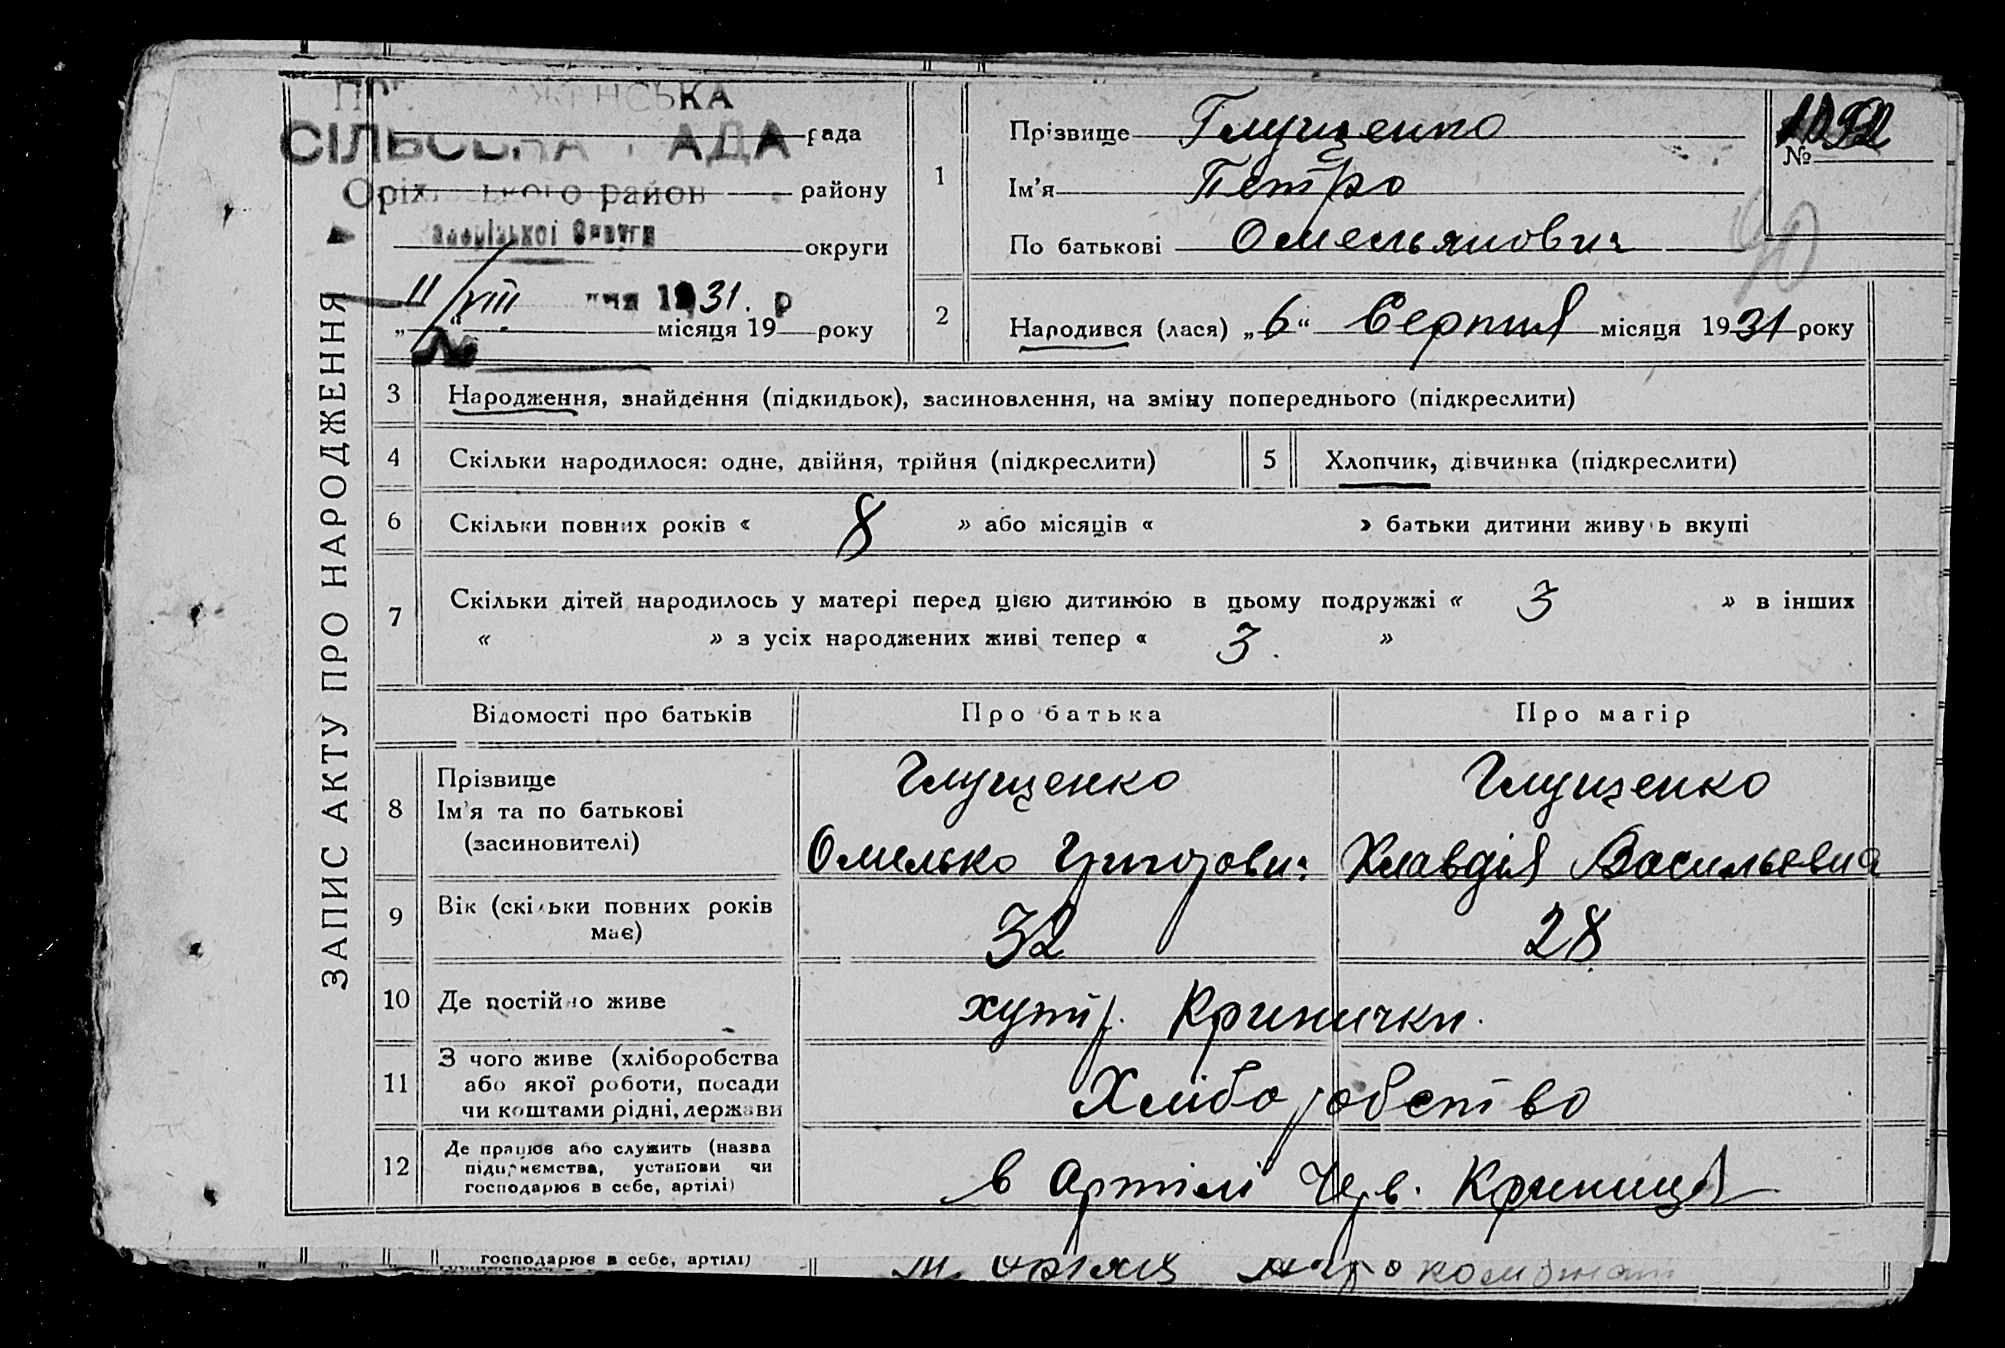 СІЛЬСЬКА РАДА рада
район району
округи
11/VIII 1931. р
„ “ місяця 19 року
ЗАПИС АКТУ ПРО НАРОДЖЕННЯ
1
Прізвище Глущенко
Ім'я Петро
По батькові Омельянович
№
90
2
Народився (лася) „6“ Серпня місяця 1931 року
3 Народження, знайдення (підкидьок), засиновлення, на зміну попереднього (підкреслити)
4 Скільки народилося: одне, двійня, трійня (підкреслити)
5 Хлопчик, дівчинка (підкреслити)
6 Скільки повних років « 8 » або місяців « » батьки дитини живуть вкупі
7 Скільки дітей народилось у матері перед цією дитиною в цьому подружжі « 3 » в інших
« » з усіх народжених живі тепер « 3. »
Відомості про батьків Про батька Про матір
8 Прізвище Глущенко Глущенко
Ім'я та по батькові
(засиновителі) Омелько Григорович Клавдія Васильевна
9 Вік (скільки повних років має) 32 28
10 Де постійно живе хутір. Кринички.
11 З чого живе (хліборобства
або якої роботи, посади Хліборобство
чи коштами рідні, держави
12 Де працює або служить (назва
підприємства, установи чи в Артілі Черв. Криниця
господарює в себе, артілі)
господарює в себе, артілі)